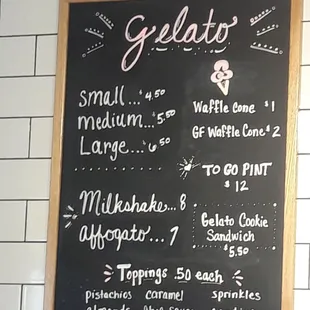 Gelato
Small... $4.50
medium... $5.50
Large... $6.50
Waffle Cone $1
GF Waffle Cone $2
TO GO PINT
$12
Milkshake... 8
affogato... 7
Gelato Cookie
Sandwich
$5.50
Toppings .50 each
pistachios caramel sprinkles
almonds